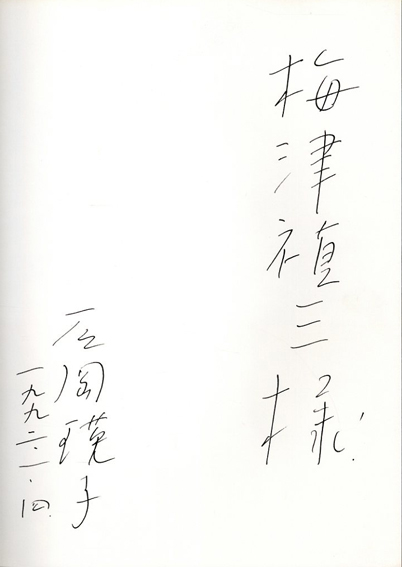 梅津禎三様
石岡瑛子
一九九二・一・